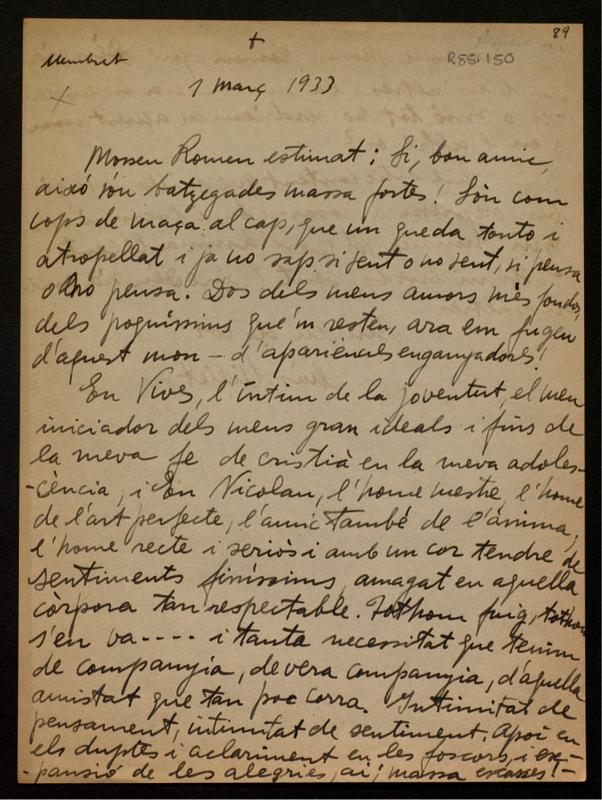 89
Membret
R85.150
1 Març 1933
Mossen Romeu estimat: Si, bon amic,
aixó són batzegades massa fortes! Són com
cops de maça al cap, que un queda tonto i
atropellat i ja no sap si sent o no sent, si pensa
o no pensa. Dos dels meus amors més fondos,
dels poguíssims que'm resten, ara em fugen
d'aquest mon – d'apariències enganyadores!
En Vives, l'íntim de la joventut, el meu
iniciador dels meus gran ideals i fins de
la meva fe de cristià en la meva adoles-
-cència, i En Nicolau, l'home mestre, l'home
de l'art perfecte, l'amic també de l'ànima,
l'home recte i seriòs i amb un cor tendre de
sentiments finíssims, amagat en aquella
còrpora tan respectable. Tothom fuig, tothom
s'en va---- i tanta necessitat que tenim
de companyia, de vera companyia, d'aquella
amistat que tan poc corra. Intimitat de
pensament, intimitat de sentiment. Apoi en
els duptes i aclariment en les foscors, i ex-
-pansió de les alegries, ai! massa escasses! –